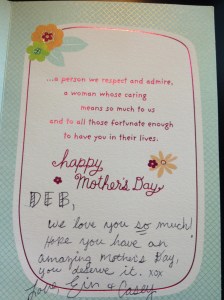 ...a person we respect and admire,
a woman whose caring
means so much to us
and to all those fortunate enough
to have you in their lives.
happy
Mother's Day
DEB,
we love you so much!
Hope you have an
amazing mother's day,
you deserve it. xox
Love, Erin & Casey